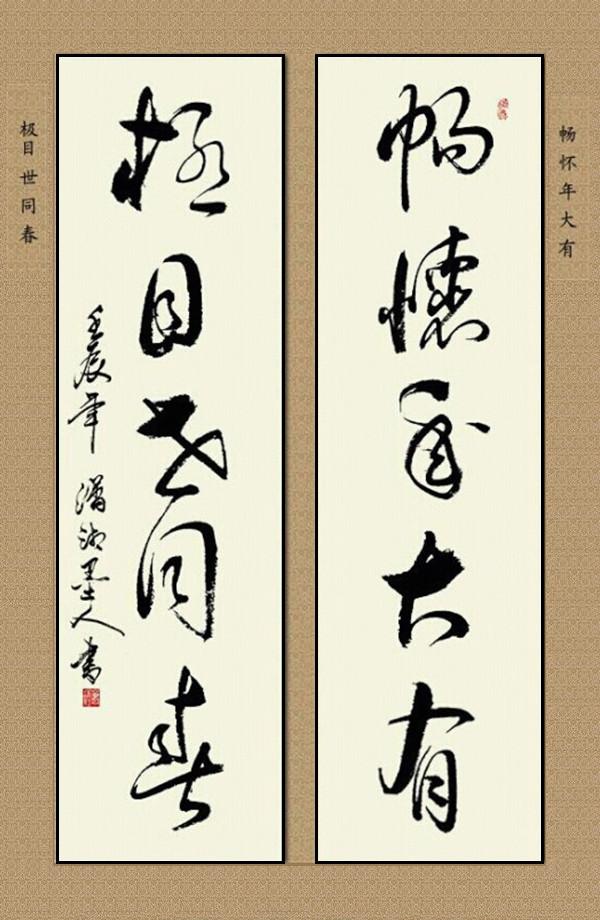 畅怀年大有
暢懷年大有
極目世同春
壬辰年 瀟湘墨人書
极目世同春